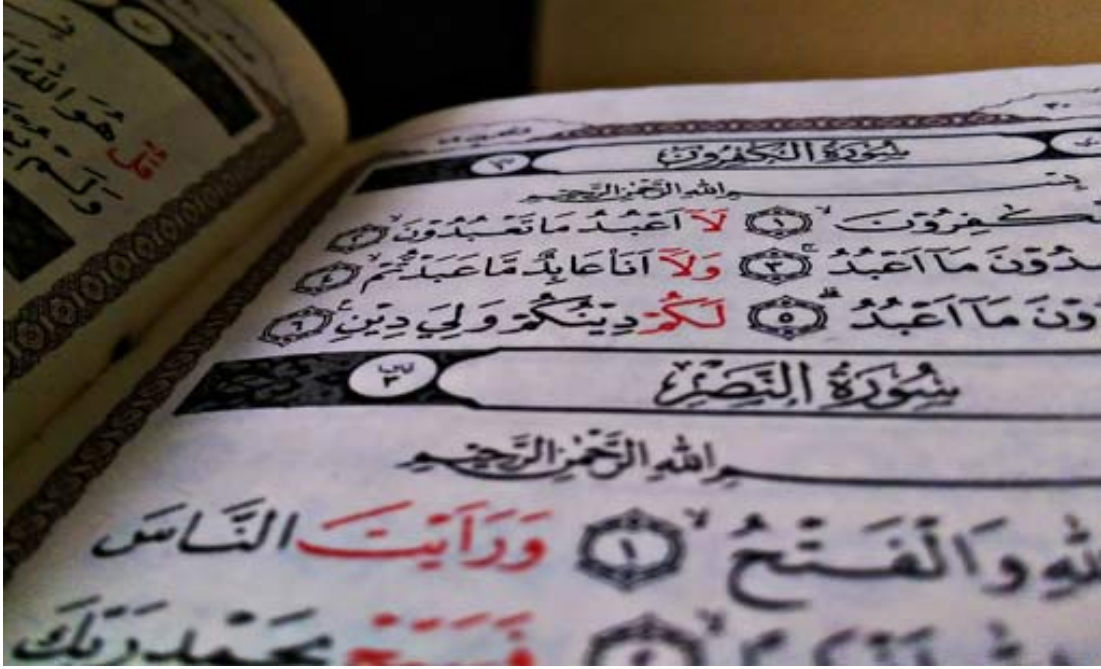 ٣٠
سُوْرَةُ الْكٰفِرُوْنَ
بِسْمِ اللّٰهِ الرَّحْمٰنِ الرَّحِيْمِ
كٰفِرُوْنَۙ ١ لَآ اَعْبُدُ مَا تَعْبُدُوْنَۙ ٢
مَآ اَعْبُدُۚ ٣ وَلَآ اَنَا۠ عَابِدٌ مَّا عَبَدْتُّمْۙ ٤
مَآ اَعْبُدُۗ ٥ لَكُمْ دِيْنُكُمْ وَلِيَ دِيْنِ ٦
سُوْرَةُ النَّصْرِ
٣
بِسْمِ اللّٰهِ الرَّحْمٰنِ الرَّحِيْمِ
وَالْفَتْحُۙ ١ وَرَاَيْتَ النَّاسَ
فَسَبِّحْ بِحَمْدِ رَبِّكَ
قُلْ هُوَ اللّٰهُ
وَلَمْ